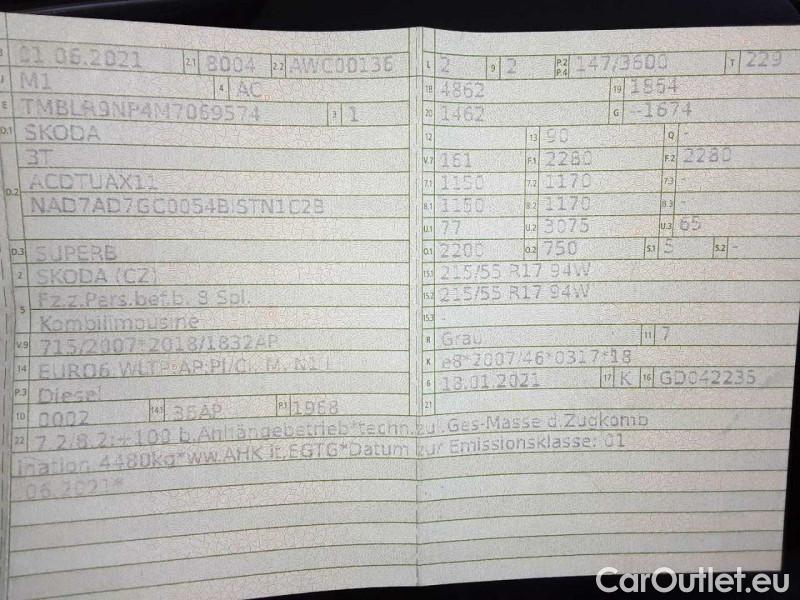 B 01.06.2021 2.1 8004 2.2 AWC00136
J M1 4 AC
E TMBLR9NP4M7069574 3 1
D.1 SKODA
3T
D.2 ACDTUAX11
NAD7AD7GC0054BISTN1C2B
D.3 SUPERB
2 SKODA (CZ)
5 Fz.z.Pers.bef.b. 8 Spl.
Kombilimousine
V.9 715/2007*2018/1832AP
14 EURO6 WLTP;AP;PI/CI; M, N1 I
P.3 Diesel
10 0002 14.1 36AP P.1 1968
22 7.2/8.2:+100 b.Anhängebetrieb*techn.zul.Ges-Masse d.Zugkomb
ination 4480kg*ww.AHK lt.EGTG*Datum zur Emissionsklasse: 01
.06.2021*
L 2 9 2 P.2 P.4 147/3600 T 229
18 4862 19 1864
20 1462 G --1674
12 - 13 90 Q -
V.7 161 F.1 2280 F.2 2280
7.1 1150 7.2 1170 7.3 -
8.1 1150 8.2 1170 8.3 -
U.1 77 U.2 3075 U.3 65
O.1 2200 O.2 750 S.1 5 S.2 -
15.1 215/55 R17 94W
15.2 215/55 R17 94W
15.3 -
R Grau 11 7
K e8*2007/46*0317*18
6 18.01.2021 17 K 16 GD042235
21
CarOutlet.eu